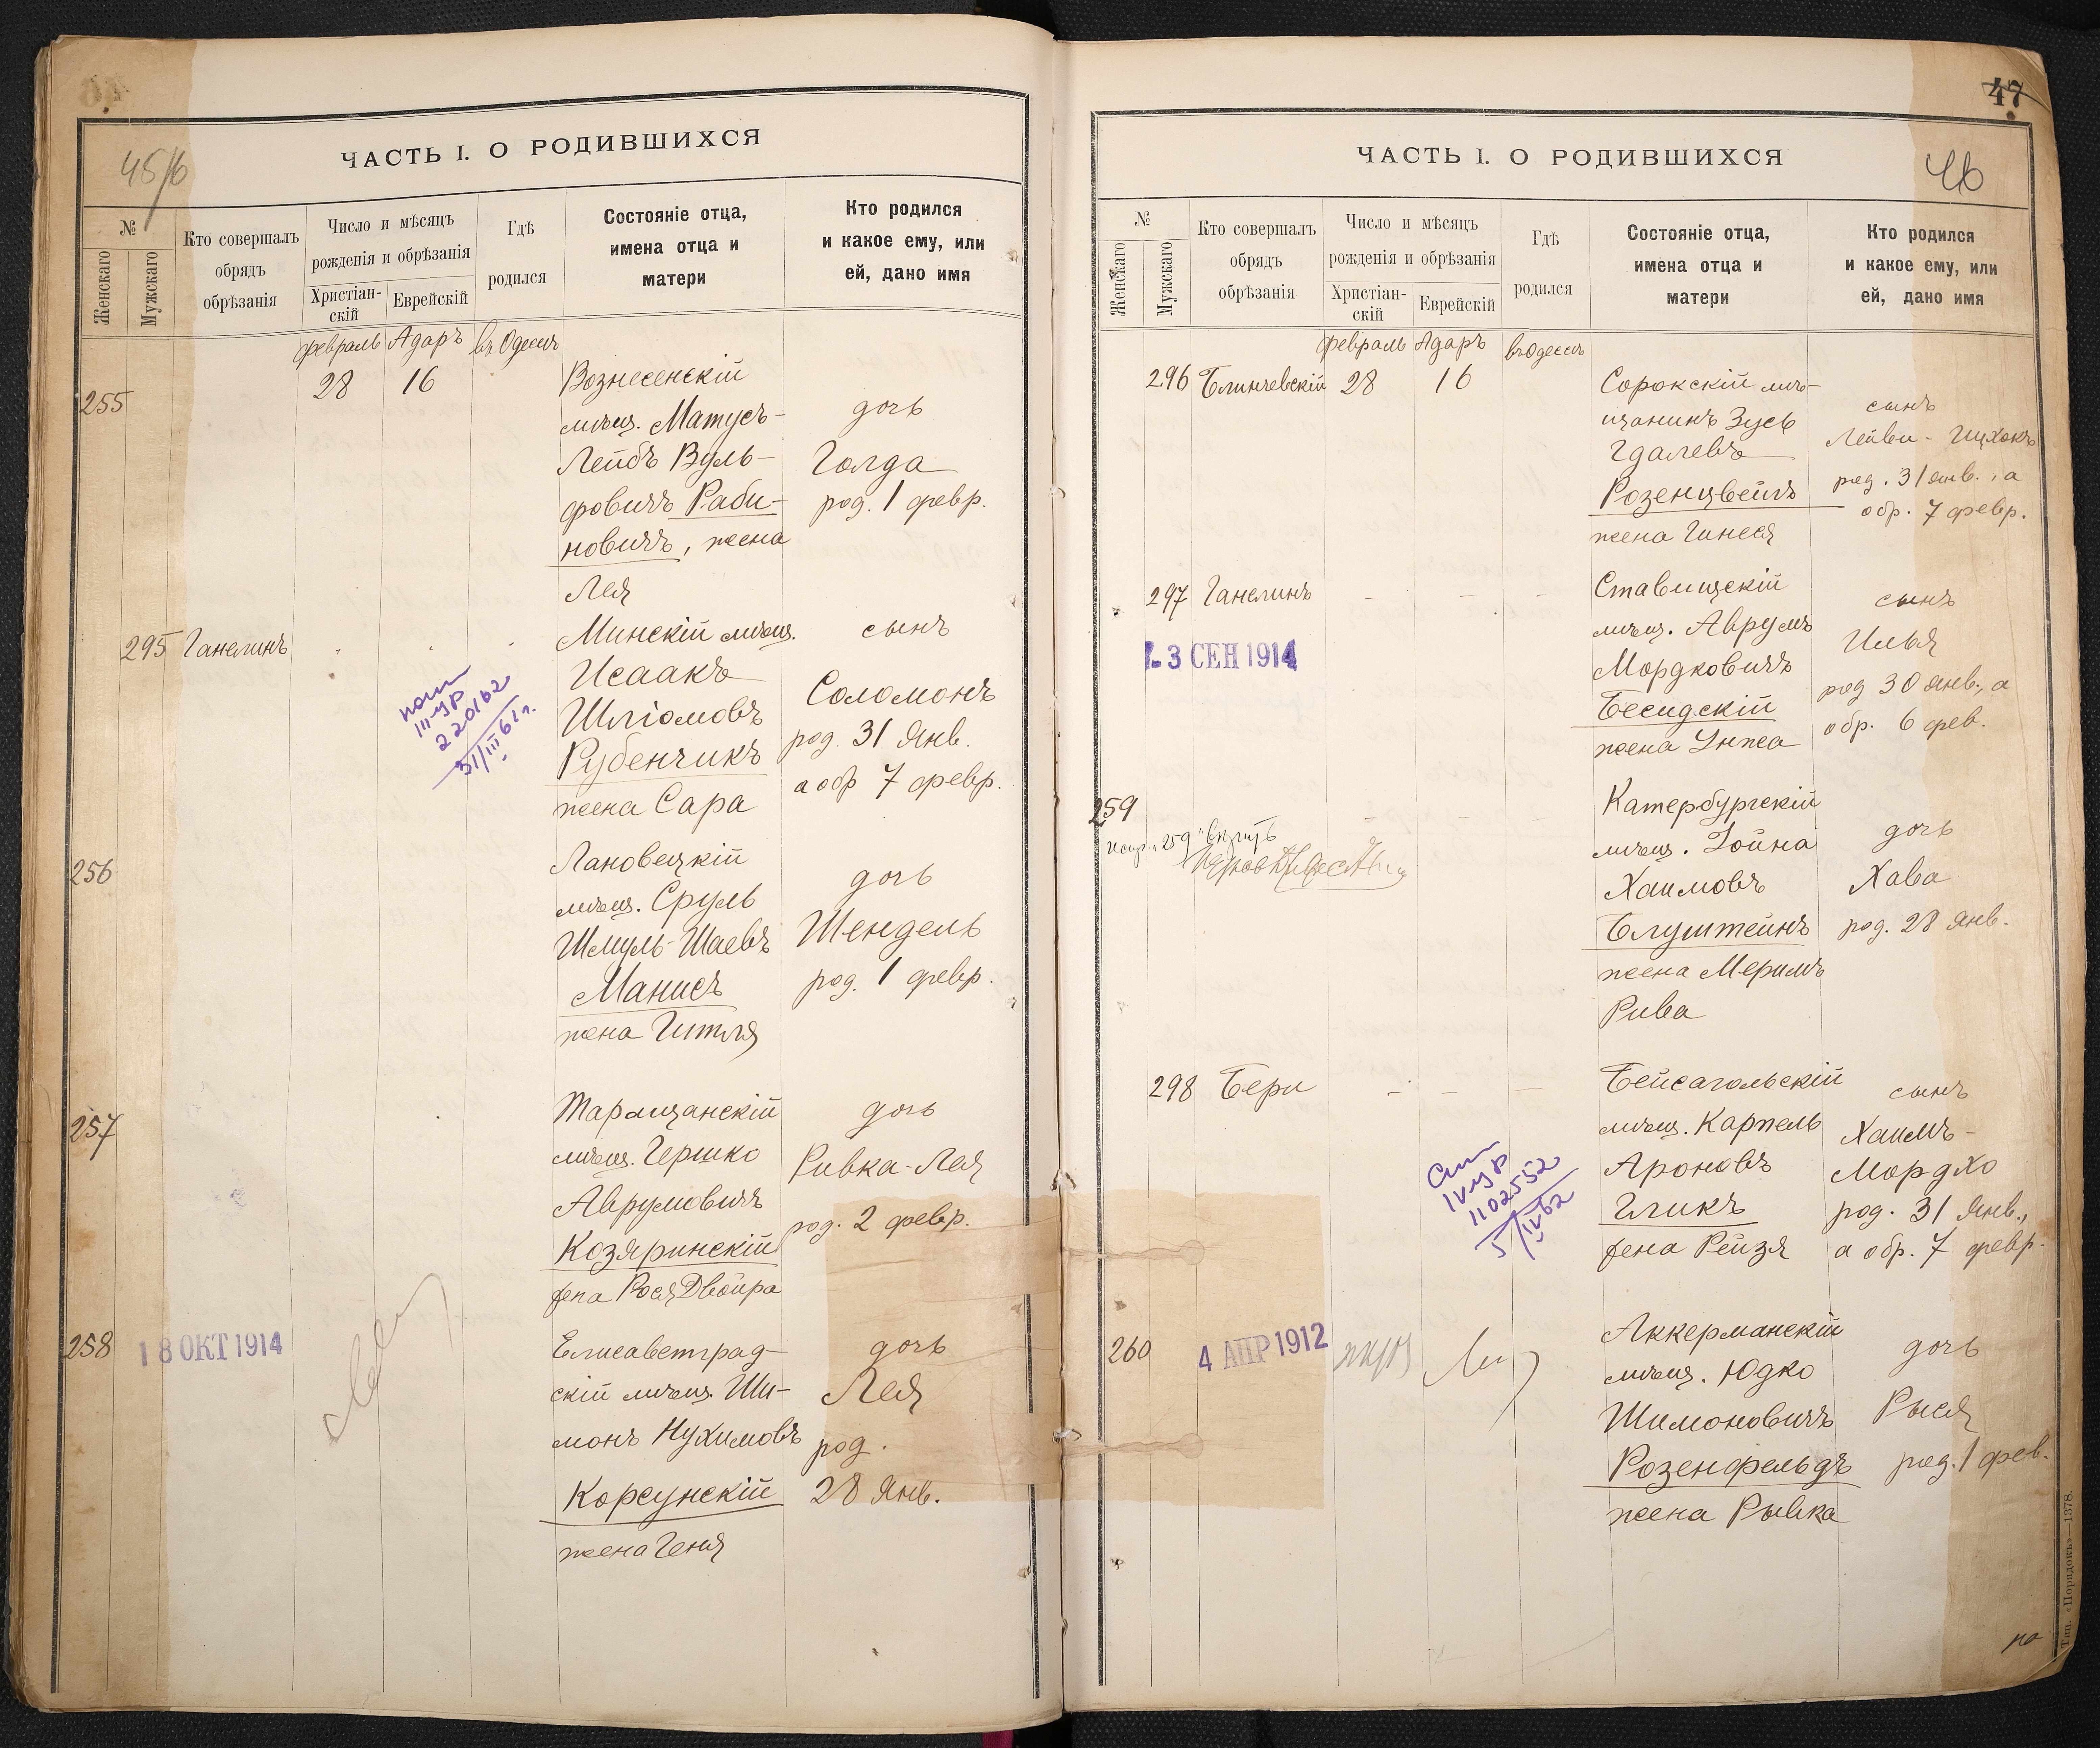 ЧАСТЬ I. О РОДИВШИХСЯ
45/б
№
Женскаго
Мужскаго
Кто совершалъ
обрядъ
обрѣзанія
Число и мѣсяцъ
рожденія и обрѣзанія
Христіан-
скій
Еврейскій
Гдѣ
родился
Состояніе отца,
имена отца и
матери
Кто родился
и какое ему, или
ей, дано имя
февраль Адаръ въ Одессѣ
255
28 16
Вознесенскій
мѣщ. Матусъ-
Лейбъ Вуль-
фовичъ Раби-
новичъ, жена
Лея
дочь
Голда
род. 1 февр.
295 Ганелинъ
III
220162
31/III 61 г.
Минскій мѣщ.
Исаакъ
Шліомовъ
Рубенчикъ
жена Сара
сынъ
Соломонъ
род. 31 Янв.
а обр 7 февр.
256
Лановецкій
мѣщ. Сруль
Шмуль-Шаевъ
Манисъ
жена Гитля
дочь
Шендель
род. 1 февр.
257
Таращанскій
мѣщ. Гершко
Аврумовичъ
Козяринскій
жена Рося Двойра
дочь
Ривка-Лея
род. 2 февр.
258
18 ОКТ 1914
Елисаветград-
скій мѣщ. Ши-
монъ Нухимовъ
Корсунскій
жена Геня
дочь
Лея
род.
28 Янв.
47
ЧАСТЬ I. О РОДИВШИХСЯ
46
№
Женскаго
Мужскаго
Кто совершалъ
обрядъ
обрѣзанія
Число и мѣсяцъ
рожденія и обрѣзанія
Христіан-
скій
Еврейскій
Гдѣ
родился
Состояніе отца,
имена отца и
матери
Кто родился
и какое ему, или
ей, дано имя
февраль Адаръ въ Одессѣ
296 Блинчевскій 28 16
Сорокскій мѣ-
щанинъ Зусь
Гдалевъ
Розенцвейгъ
жена Гинеся
сынъ
Лейви-Ицхокъ
род. 31 янв., а
обр. 7 февр.
297 Ганелинъ
3 СЕН 1914
Ставищскій
мѣщ. Аврумъ
Мордковичъ
Бесидскій
жена Энта
сынъ
Илья
род 30 Янв., а
обр. 6 фев.
259
259
Катербургскій
мѣщ. Іойна
Хаимовъ
Блуштейнъ
жена Меримъ
Рива
дочь
Хава
род. 28 Янв.
298 Бери
IV
1102552
5/IV 62
Бейсагольскій
мѣщ. Карпель
Ароновъ
Гликъ
жена Рейзя
сынъ
Хаимъ-
Мордхо
род. 31 Янв.,
а обр. 7 февр.
260
4 АПР 1912
Аккерманскій
мѣщ. Юдко
Шимоновичъ
Розенфельдъ
жена Рывка
дочь
Рыся
род. 1 фев.
Тип. «Порядокъ»—1378.